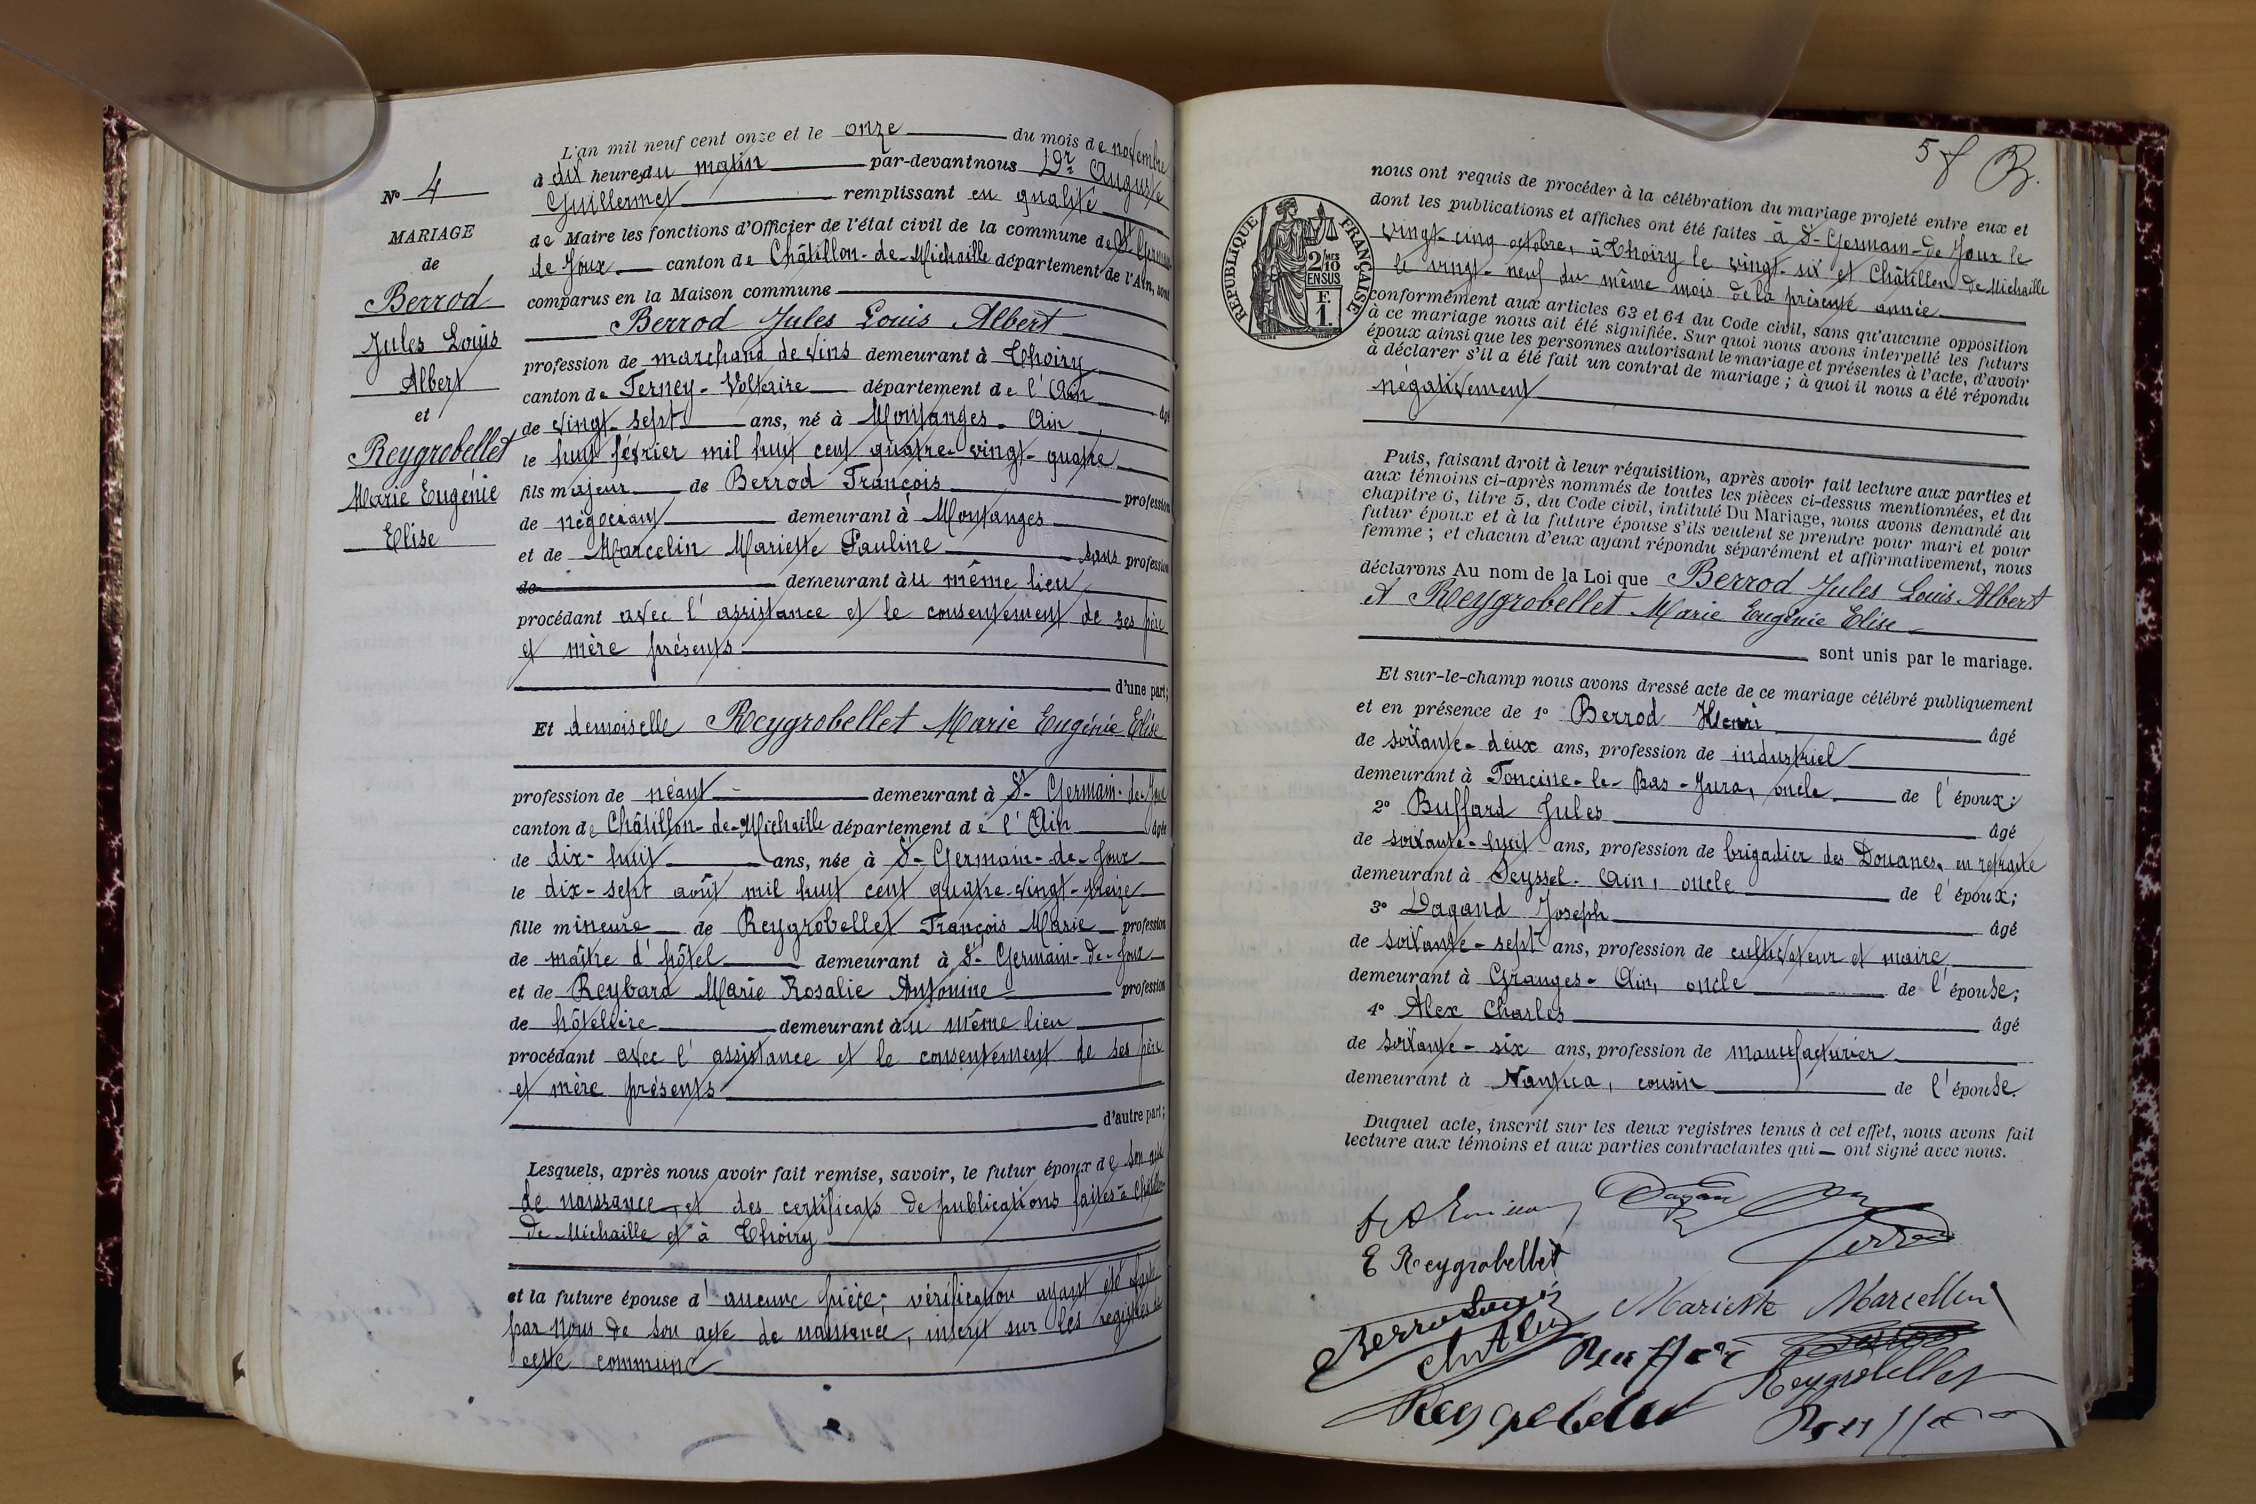 N° 4
MARIAGE
de
Berrod
Jules Louis
Albert
et
Reygrobellet
Marie Eugénie
Elise
L'an mil neuf cent onze et le onze du mois de novembre
à dix heures du matin par-devant nous Dr Auguste
Guillermet remplissant en qualité
de Maire les fonctions d'Officier de l'état civil de la commune de St Germain
de Joux canton de Châtillon-de-Michaille département de l'Ain, sont
comparus en la Maison commune
Berrod Jules Louis Albert
profession de marchand de vins demeurant à Thoiry
canton de Ferney-Voltaire département de l'Ain âgé
de vingt-sept ans, né à Montanges. Ain
le huit février mil huit cent quatre-vingt-quatre
fils majeur de Berrod François profession
de négociant demeurant à Montanges
et de Marcelin Mariette Pauline sans profession
de demeurant au même lieu
procédant avec l'assistance et le consentement de ses père
et mère présents
d'une part;
Et demoiselle Reygrobellet Marie Eugénie Elise
profession de néant demeurant à St-Germain-de-Joux
canton de Châtillon-de-Michaille département de l'Ain âgée
de dix-huit ans, née à St-Germain-de-Joux
le dix-sept août mil huit cent quatre-vingt-treize
fille mineure de Reygrobellet François Marie profession
de maître d'hôtel demeurant à St-Germain-de-Joux
et de Reybard Marie Rosalie Antonine profession
de hôtelière demeurant au même lieu
procédant avec l'assistance et le consentement de ses père
et mère présents
d'autre part;
Lesquels, après nous avoir fait remise, savoir, le futur époux de son acte
de naissance, et des certificats de publications faites à Châtillon
de-Michaille et à Thoiry
et la future épouse d'aucune pièce; vérification ayant été faite
par nous de son acte de naissance, inscrit sur les registres de
cette commune
5 f B.
RÉPUBLIQUE FRANÇAISE
2/10 MES
EN SUS
F.
1.
nous ont requis de procéder à la célébration du mariage projeté entre eux et
dont les publications et affiches ont été faites à St-Germain-de-Joux le
vingt-cinq octobre, à Thoiry le vingt-six et Châtillon de Michaille
le vingt-neuf du même mois de la présente année
conformément aux articles 63 et 64 du Code civil, sans qu'aucune opposition
à ce mariage nous ait été signifiée. Sur quoi nous avons interpellé les futurs
époux ainsi que les personnes autorisant le mariage et présentes à l'acte, d'avoir
à déclarer s'il a été fait un contrat de mariage; à quoi il nous a été répondu
négativement
Puis, faisant droit à leur réquisition, après avoir fait lecture aux parties et
aux témoins ci-après nommés de toutes les pièces ci-dessus mentionnées, et du
chapitre 6, titre 5, du Code civil, intitulé Du Mariage, nous avons demandé au
futur époux et à la future épouse s'ils veulent se prendre pour mari et pour
femme; et chacun d'eux ayant répondu séparément et affirmativement, nous
déclarons Au nom de la Loi que Berrod Jules Louis Albert
et Reygrobellet Marie Eugénie Elise
sont unis par le mariage.
Et sur-le-champ nous avons dressé acte de ce mariage célébré publiquement
et en présence de 1° Berrod Henri âgé
de soixante-deux ans, profession de industriel
demeurant à Foncine-le-Bas-Jura, oncle de l'époux;
2° Buffard Jules âgé
de soixante-huit ans, profession de brigadier des Douanes, en retraite
demeurant à Seyssel. Ain, oncle de l'époux;
3° Dagand Joseph âgé
de soixante-sept ans, profession de cultivateur et maire
demeurant à Granges-Ain, oncle de l'épouse;
4° Alex Charles âgé
de soixante-six ans, profession de manufacturier
demeurant à Nantua, cousin de l'épouse.
Duquel acte, inscrit sur les deux registres tenus à cet effet, nous avons fait
lecture aux témoins et aux parties contractantes qui ont signé avec nous.
Dagand
Berrod
E Reygrobellet
Mariette Marcellin
Berrod Louis
Ch Alex
Buffard
Reygrobellet
Reygrobellet